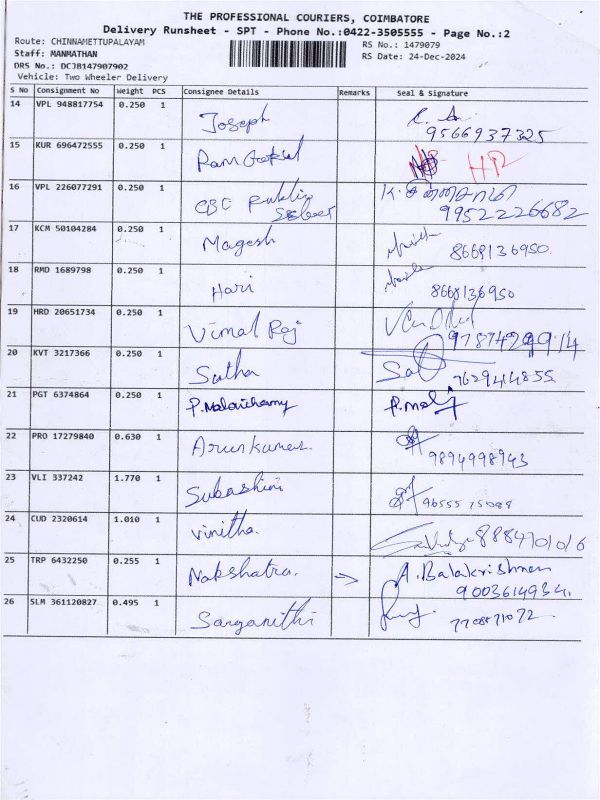 THE PROFESSIONAL COURIERS, COIMBATORE
Delivery Runsheet - SPT - Phone No.:0422-3505555 - Page No.:2
Route: CHINNAMETTUPALAYAM RS No.: 1479079
Staff: MANMATHAN RS Date: 24-Dec-2024
DRS No.: DCJB147907902
Vehicle: Two Wheeler Delivery
S No Consignment No Weight PCS Consignee Details Remarks Seal & Signature
14 VPL 948817754 0.250 1 Joseph
9566937325
15 KUR 696472555 0.250 1 Ram Gokul HR
16 VPL 226077291 0.250 1 CBC Public
9952226682
17 KCM 50104284 0.250 1 Magesh 8668136950
18 RMD 1689798 0.250 1 Hari 8668136950
19 HRD 20651734 0.250 1 Vimal Raj
9787429914
20 KVT 3217366 0.250 1 Sutha
7629414855
21 PGT 6374864 0.250 1 P. Malaichamy
22 PRO 17279840 0.630 1 Arunkumar
9894998943
23 VLI 337242 1.770 1 Subashini
24 CUD 2320614 1.010 1 Vinitha
25 TRP 6432250 0.255 1 Nakshatra. → A. Balakrishnan
9003614934.
26 SLM 361120827 0.495 1